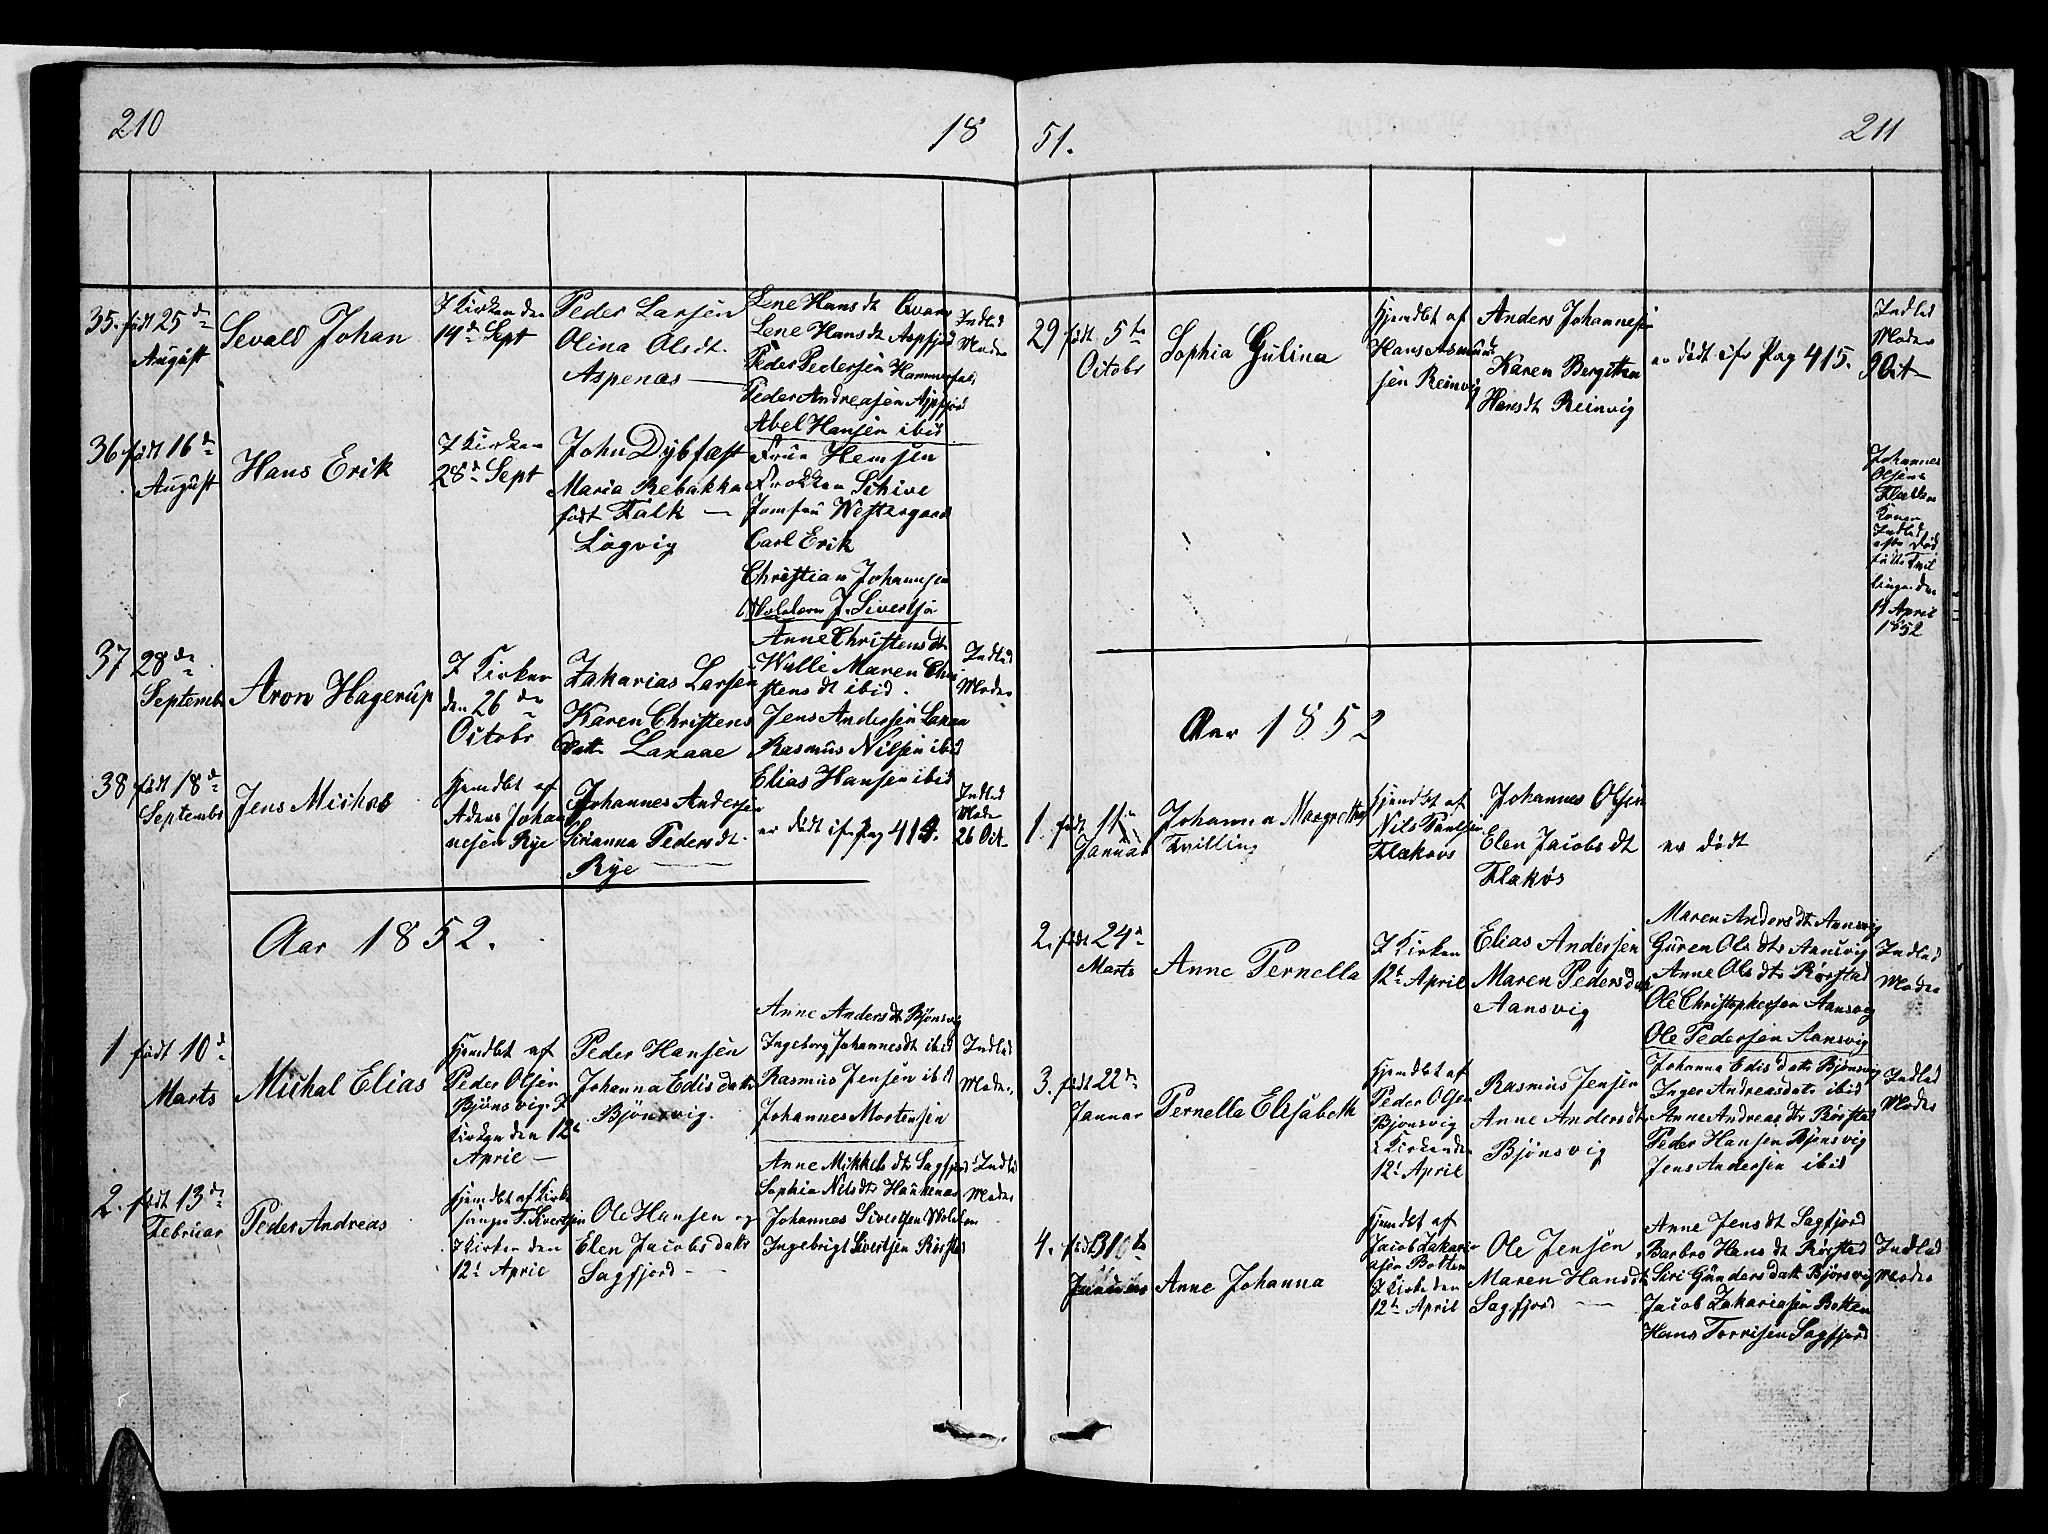 210
18
35. født 25de
August
Sevald Johan
I Kirken den
14de Sept
Peder Larsen
Olina Olsdt.
Aspenæs —
Lene Hansdt Qvarn
Lene Hansdt Aspfjord
Peder Pedersen
Peder Andreasen Aspfjord
Abel Hansen ibid
Indled
Moder
36 født 16de
August
Hans Erik
I Kirken
28de Sept
John Dybfæst
Maria Rebakka
født Falk —
Løgvig
Frue Hemsen
Frøken Schive
Jomfru Westergaard
Carl Erik
Christian Johannsen
J. Sivertsen
37 28de
September
Aron Hagerup
I Kirken
den 26de
Octobr
Zakarias Larsen
Karen Christens
datt Laxaae
Anne Christensdt
Maren Chri
stensdt ibid.
Jens Andersen Laxaa
Rasmus Nilsen ibid
Elias Hansen ibid
Indled
Moder
38 født 18de
Septembr
Jens Michal
Hjemdbt af
Johan
nesen Rye
Johannes Andersen
Sirianna Pedersdt.
Rye —
er dødt
Pag 413.
Indled
Moder
26 Oct
Aar 1852.
1 født 10de
Marts
Michal Elias
Hjemdbt af
Peder Olsen
Bjønsvig. I
Kirken den 12te
April —
Peder Hansen
Johanna Edisdatt
Bjønsvig.
Anne Andersdt Bjønsvig
Ingeborg Johannesdt ibid
Rasmus Jensen ibd
Johannes Mortensen
Indled
Moder.
2. født 13de
Februar
Peder Andreas
Hjemdbt af Kirke
sanger T. Sivertsen
I Kirken den
12te April
Ole Hansen og
Elen Jacobsdatt
Sagfjord —
Anne Mikkelsdt Sagfjord
Sophia Nilsdtr Haukenæs
Johannes Sivertsen
Ingebrigt Sivertsen Rørstad
Indled
Moder
51.
211
29 født 5te
Octobr
Sophia Gulina
Hjemdbt af
Hans Asmund
sen Reinvig
Anders Johannesen
Karen Bergitha
Hansdt Reinvig
er dødt cfr Pag 415.
Indled
Moder
9 Oct
Johannes
Olsens
Flakøs
Kone
Indled
efter Død
fødte Tvil
linger den
11 April
1852
Aar 1852
1. født 11te
Januar
Johanna Margretha
Tvilling
Hjemdbt af
Nils Paulsen
Flakøs
Johannes Olsen
Elen Jacobsdt
Flakøs
er dødt
2. født 24de
Marts
Anne Pernella
I Kirken
12te April
Elias Andersen
Maren Pedersdatt
Aansvig
Maren Andersdt Aansvig
Guren Olsdtr Aansvig
Anne Olsdtr Rørstad
Ole Christophersen Aansvig
Ole Pedersen Aansvig
Indled
Moder
3. født 22de
Januar
Pernella Elisabeth
Hjemdbt af
Peder Olsen
Bjønsvig
i Kirken den
12te April
Rasmus Jensen
Anne Andersdt
Bjønsvig
Johanna Edisdatt Bjønsvig
Inger Andreasdatt ibid
Anne Andreasdtr Rørstad
Peder Hansen Bjønsvig
Jens Andersen ibid
Indled
Moder
4. født
Januar
Anne Johanna
Hjemdbt af
Jacob Zakari
asen Botten
I Kirke den
12te April
Ole Jensen
Maren Hansdt
Sagfjord —
Anne Jensdt Sagfjord
Barbro Hansdt Rørstad
Siri Gundersdatt Bjønsvig
Jacob Zakariasen Botten
Hans Torrisen Sagfjord
Indled
Moder